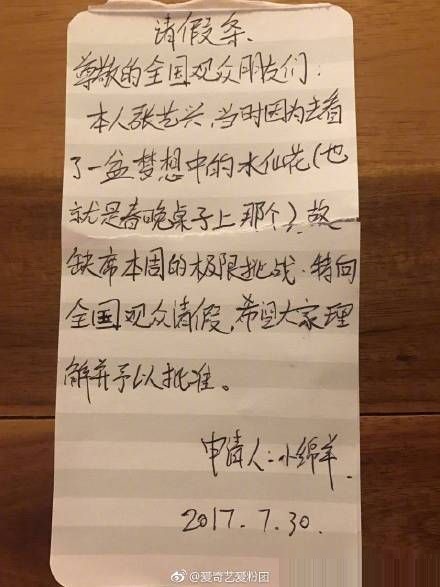 请假条.
尊敬的全国观众朋友们:
本人张艺兴,当时因为去看
了一盆梦想中的水仙花(也
就是春晚桌子上那个),故
缺席本周的极限挑战.特向
全国观众请假,希望大家理
解并予以批准。
申请人:小绵羊.
2017.7.30.
爱奇艺爱粉团